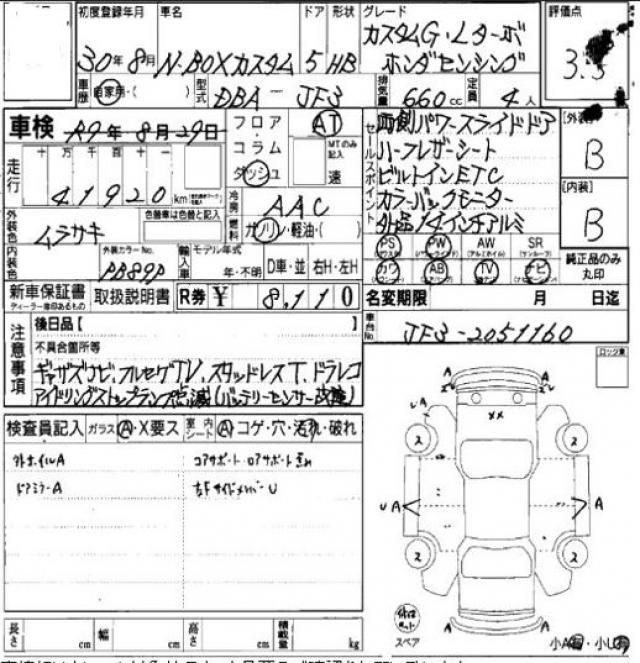 初度登録年月 車名 ドア 形状 グレード 評価点
30年8月 N・BOXカスタム 5 HB カスタムG・Lターボ
ホンダセンシング 3.5
車歴 自家用・( ) 型式 DBA - JF3 排気量 660cc 定員 4人
車検 R7年8月29日 フロア・コラム ダッシュ AT MTのみ記入 速
セールスポイント 両側パワースライドドア [外装] B
ハーフレザーシート
ビルトインETC
カラーバックモニター [内装] B
外品14インチアルミ
走行 十 万 千 百 十 一
41920 km
冷房 AAC
燃料 ガソリン・軽油・( )
外装色 ムラサキ 色替車は色替と記入
内装色 外装カラーNo. PB89P 輸入車 モデル年式 年・不明 D車・並 右H・左H
PS PW AW SR
カワ AB TV ナビ 純正品のみ丸印
新車保証書 ディーラー車印あるもの 取扱説明書 R券 ¥ 8,110
名変期限 月 日迄
車台No JF3-2051160
注意事項 後日品【 】
不具合箇所等
ギャザズナビ、フルセグTV、スタッドレスT、ドラレコ
アイドリングストップランプ点滅(バッテリーセンサー
ロック車
検査員記入 ガラス A・X要ス 室内シート A コゲ・穴・汚れ・破れ
外ホイルA コアサポート・ロアサポート
ドアミラーA 右Fサイドメンバー U
A A
UA A
XX
2 2
UA A
2 2
スペア 小A 小U
長さ cm 幅 cm 高さ cm 積載量 kg